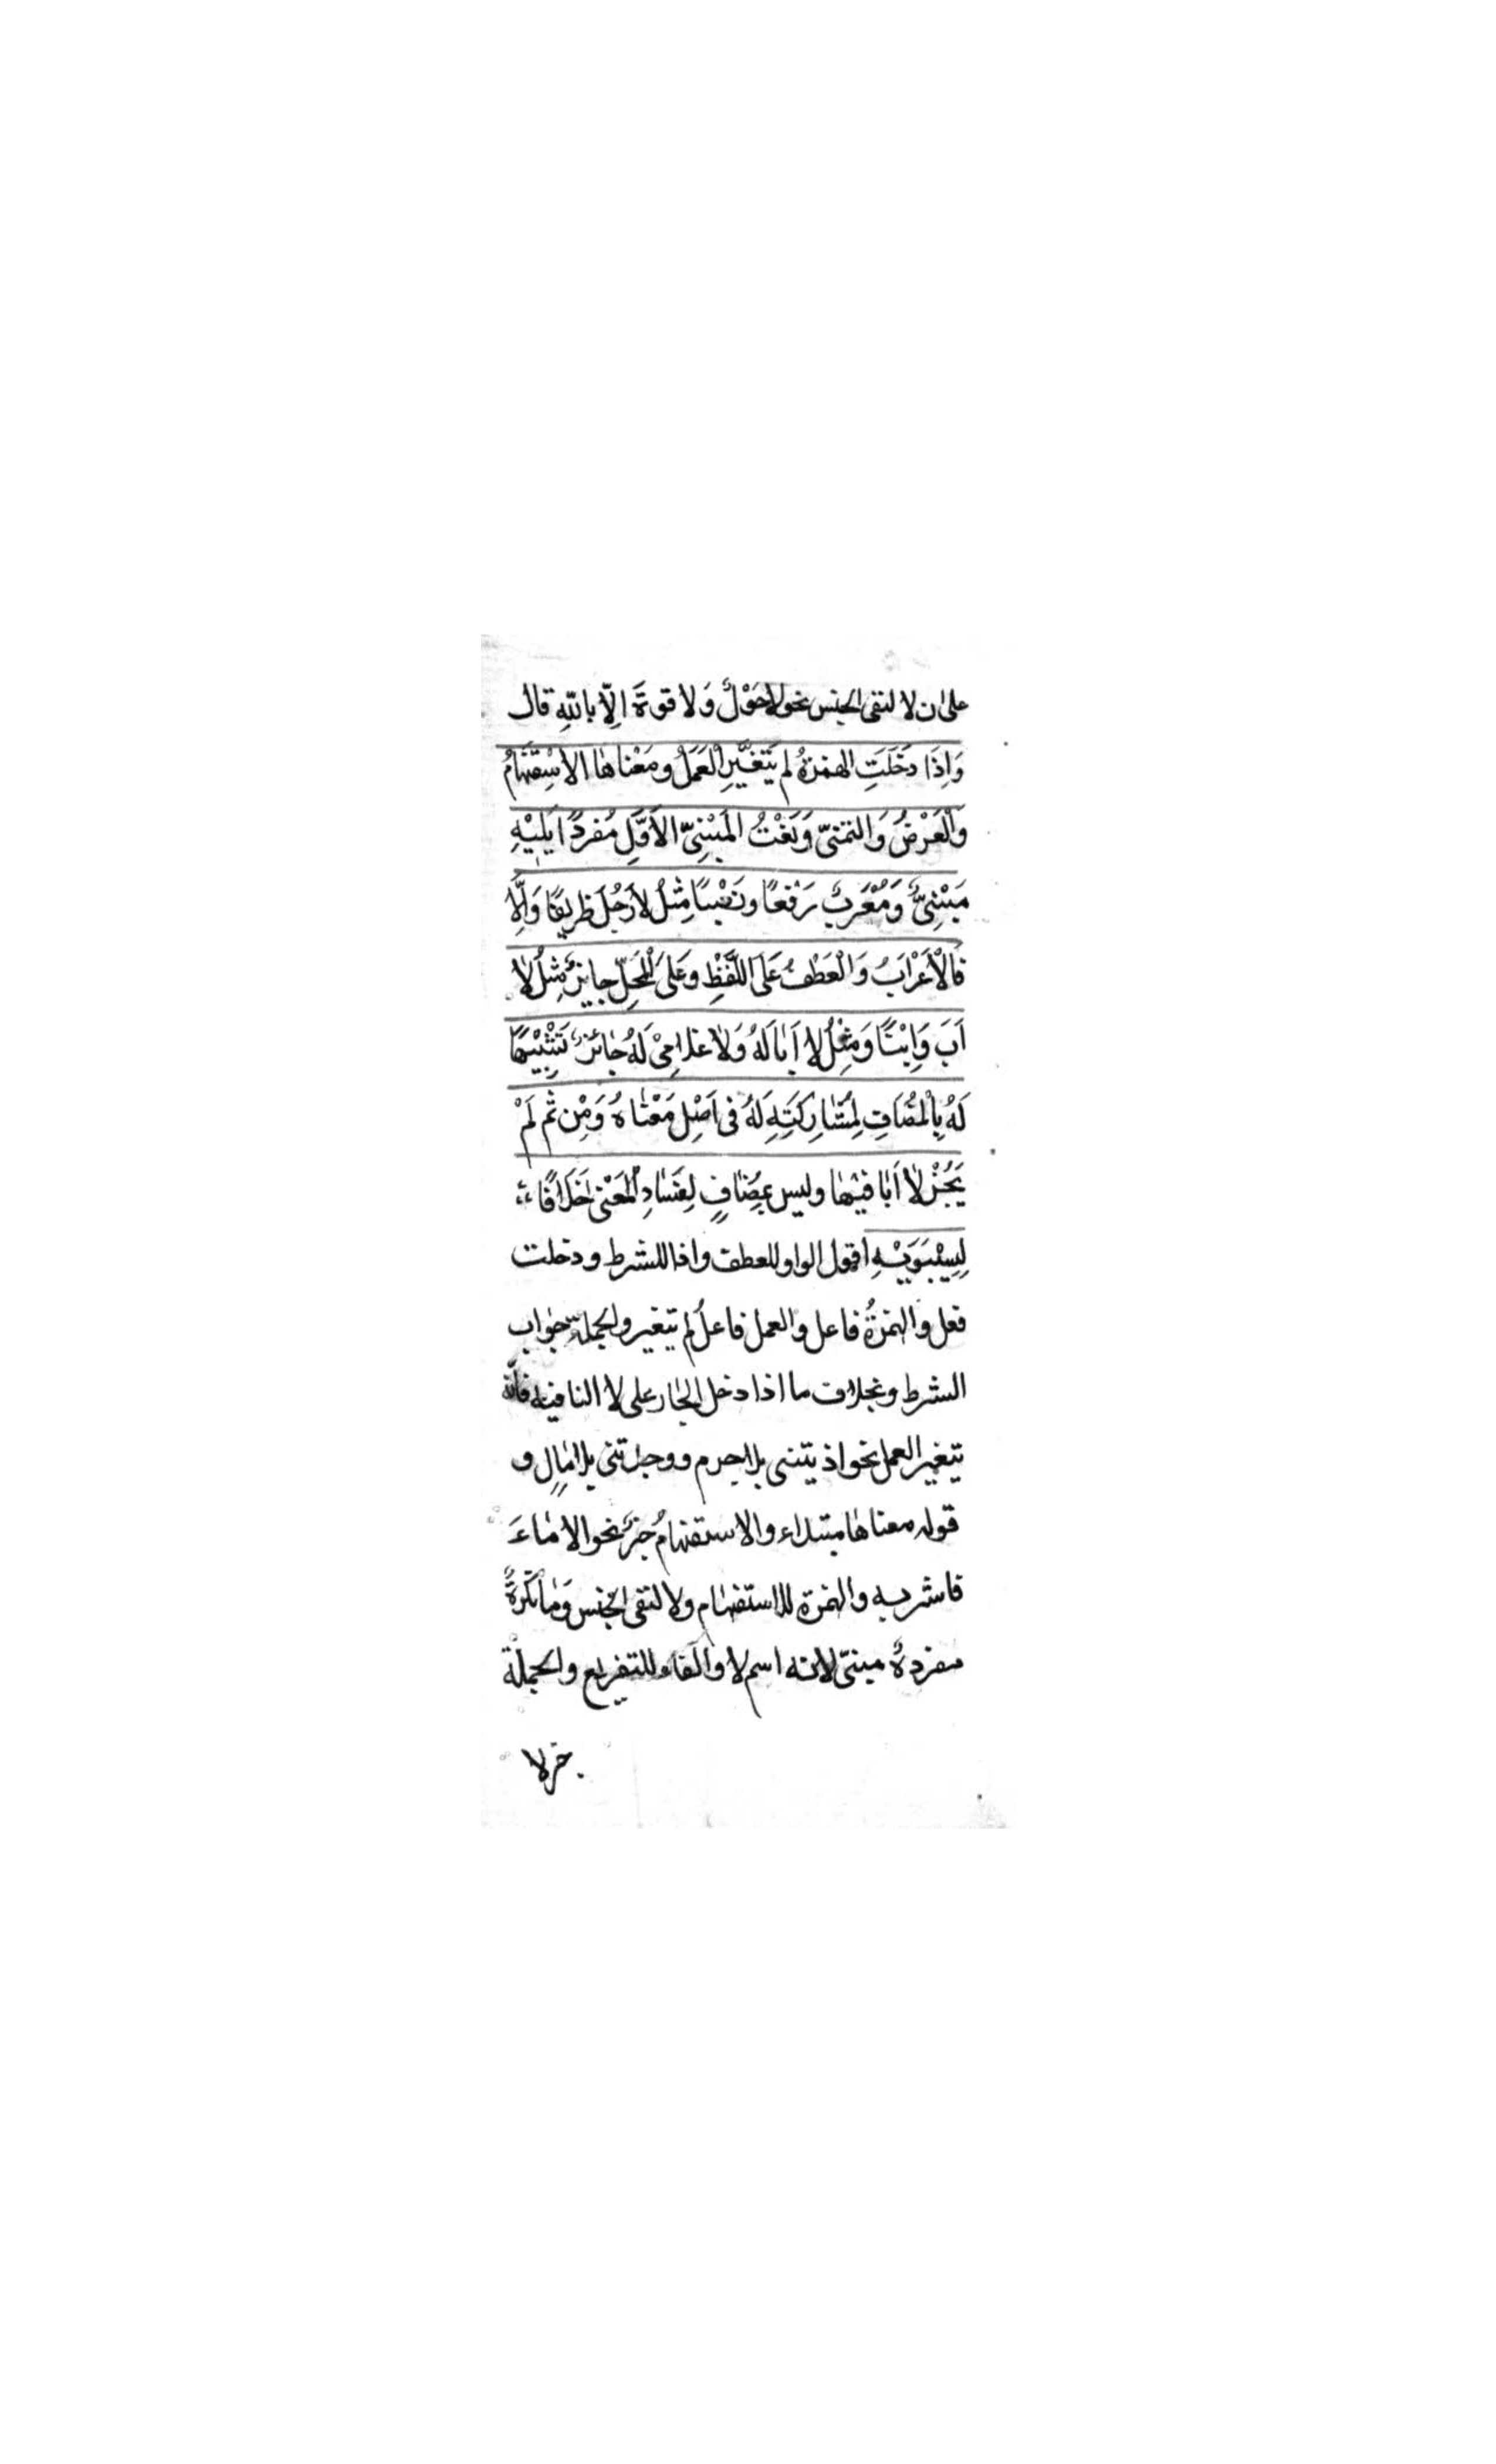 على ان لا لنفى الجنس نحو لا حَوْلَ وَلا قوةَ الّا بالله قال
وَاِذَا دَخَلَتِ الهمزةُ لم يَتَغَيَّرِ الْعَمَلُ ومَعْناها الاِسْتِفْهَامُ
وَالْعَرْضُ وَالتمنىّ وَنَعْتُ المَبْنِىّ الاَوَّلِ مُفْردًا يَلِيْهِ
مَبْنِىٌّ وَمُعْرَبٌ رَفْعًا ونَصْبًا مِثْلُ لا رَجُلَ ظَرِيفًا وَاِلَّا
فَالْاَعْرَابُ وَالْعَطفُ عَلَى اللَّفْظِ وَعَلَى الْمَحِلّ جايزٌ مِثْلُ لا
اَبَ وَاِبْنًا وَمِثْلُ لا اَبَا لَهُ وَلا غلامِىْ لَهُ جَائزٌ تَشْبِيْهًا
لَهُ بِالْمُضَافِ لِمُشَارِكَتِهِ لَهُ فى اَصْلِ مَعْنَاهُ وَمِنْ ثم لَمْ
يَجُزْ لا اَبَا فيْهَا وليس بمُضَافٍ لِفَسَادِ الْمَعْنى خَلَافًا
لِسِيْبَوَيْهِ اقول الواو للعطف واذا للشرط ودخلت
فعل والهمزةُ فاعل والعمل فاعلُ لم يتغير والجملة جواب
الشرط وبخلاف ما اذا دخل الجار على لا النافيه فانّه
يتغير العمل نحو اذيتنى بلا جرم ووجدتنى بلا مالٍ و
قوله معناها مبتداء والاستفهامُ خبرٌ نحو الا ماءَ
فاشربه والهمزة للاستفهام ولا لنفى الجنس وَمَا نكرةٌ
مفردةٌ مبنىّ لانه اسم لا والفاء للتفريع والجملة
خبر لا